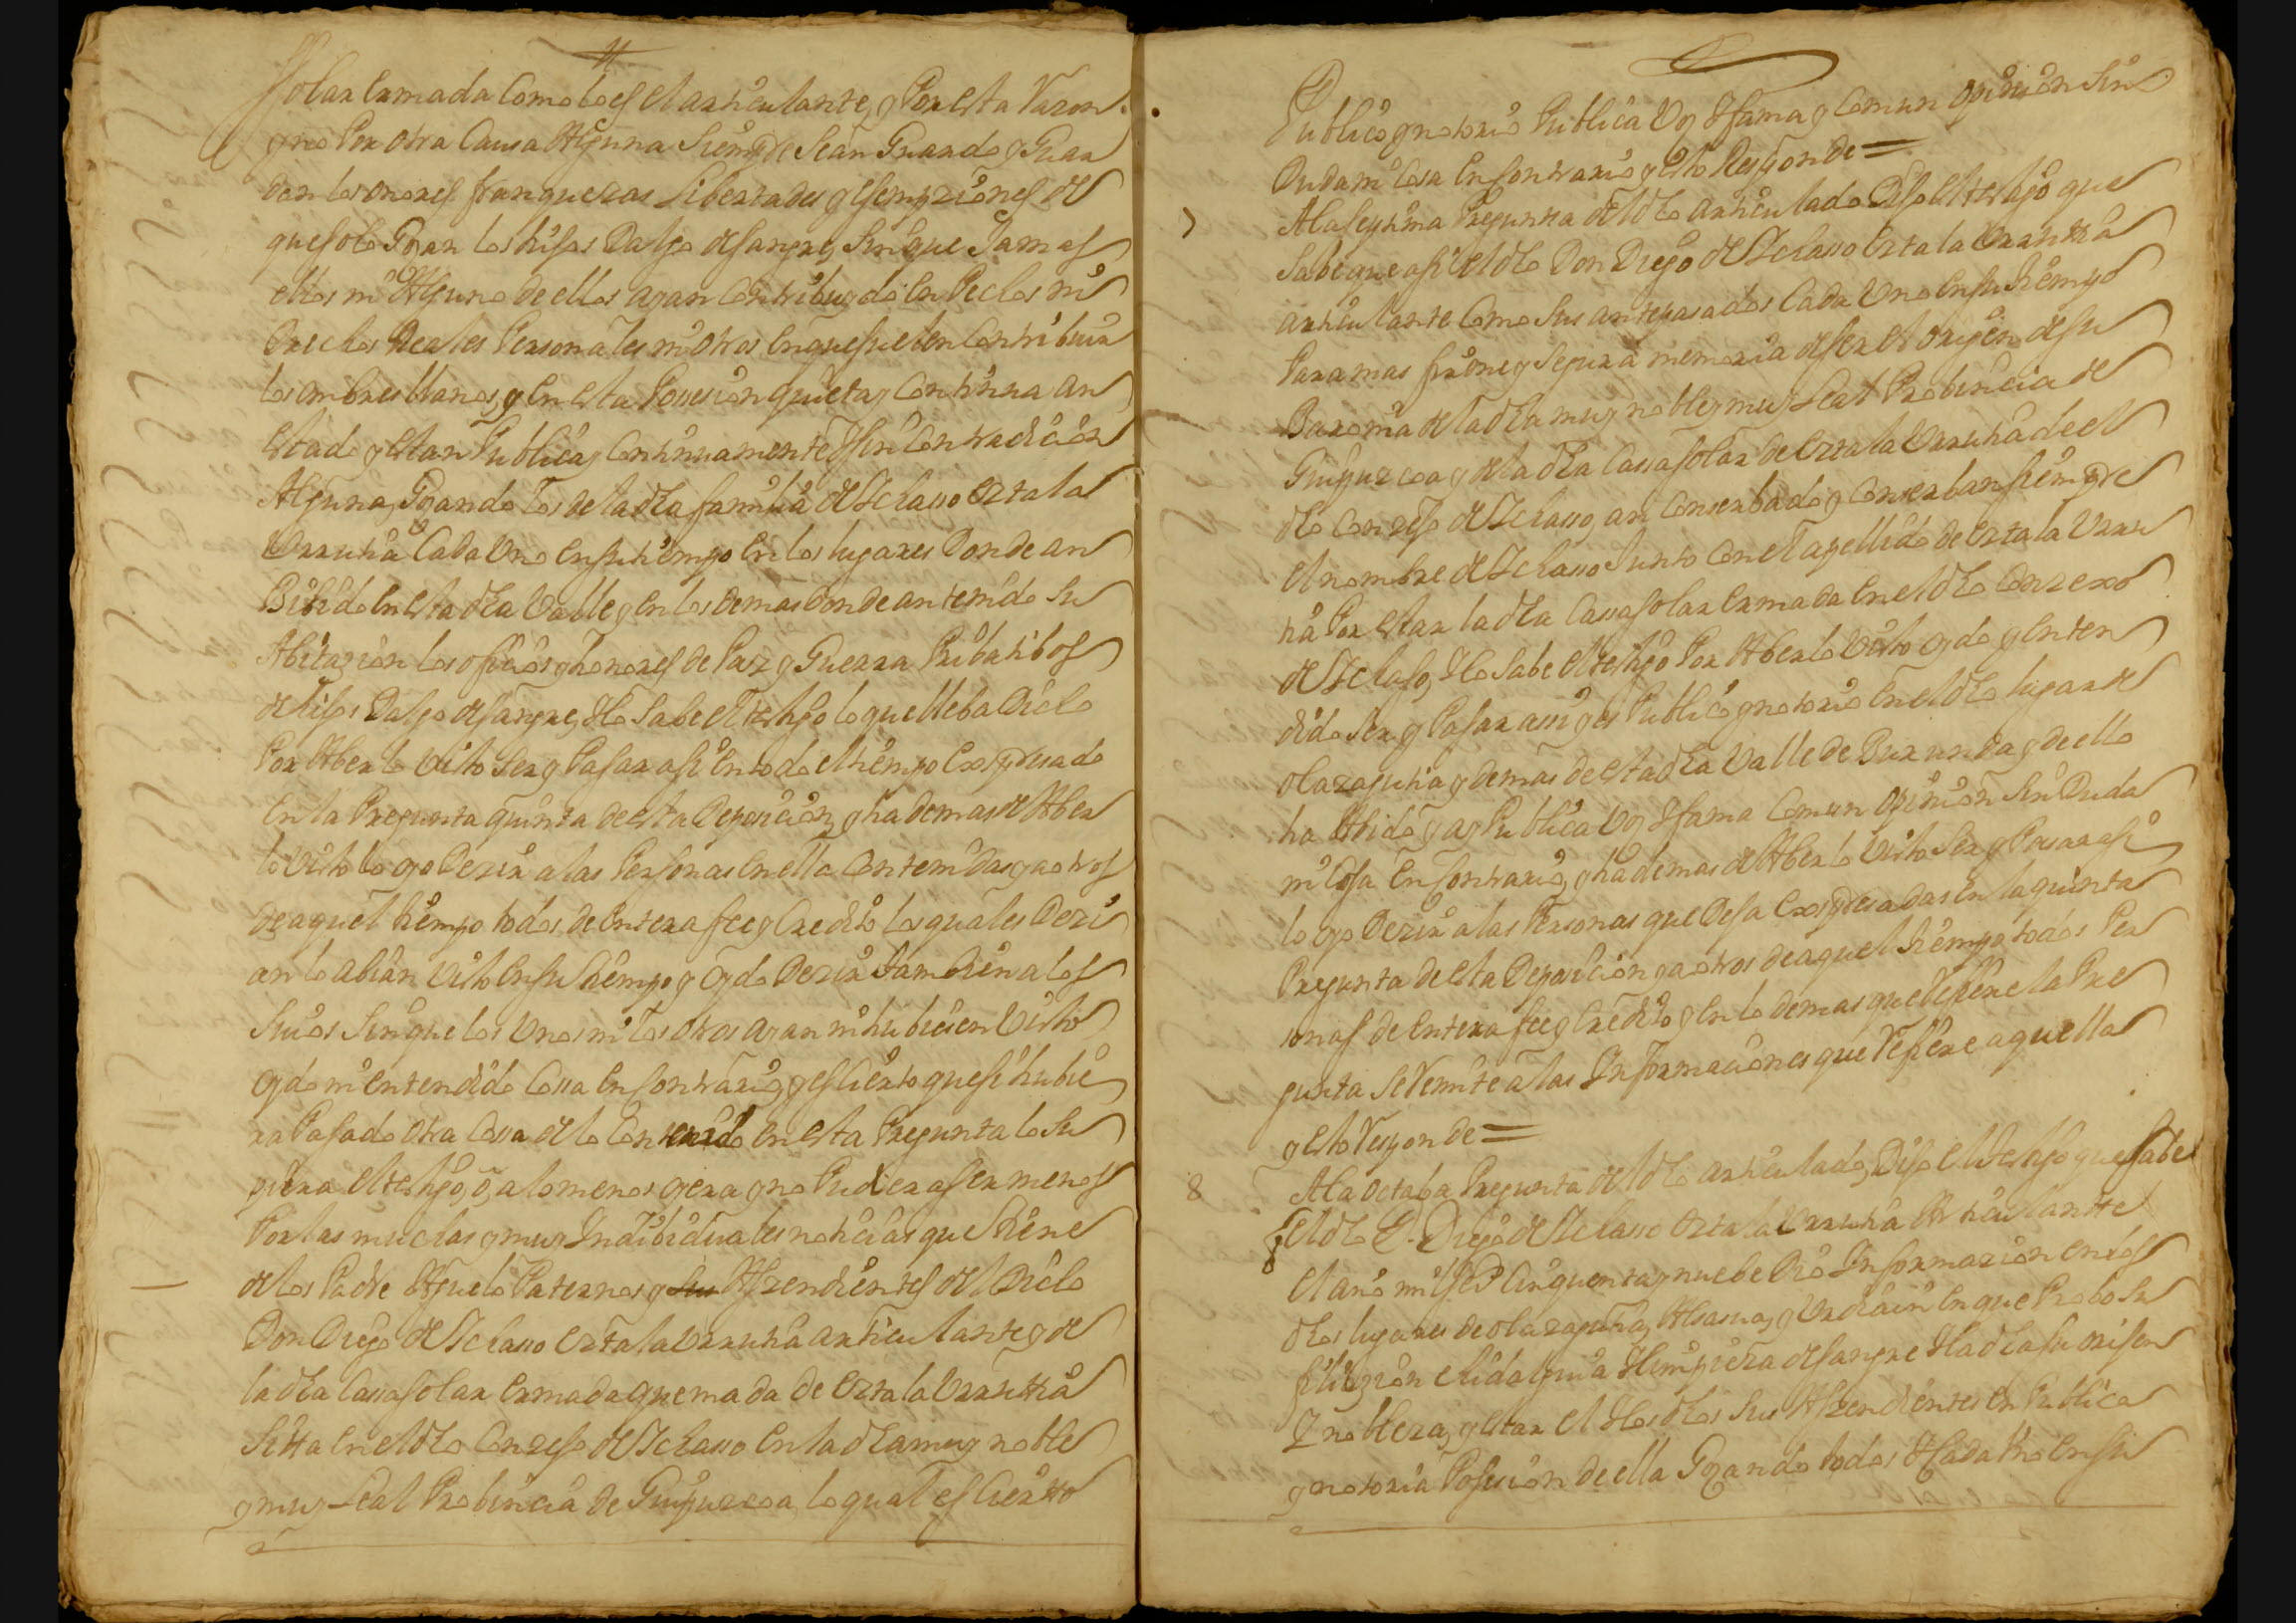 Solar Ermada Como lo es el articulante, y Por esta Razon
y no Por otra Causa Alguna Siempre Sean Guardo y Guar
dan los onores franquezas Libertades y Esempziones de
que solo Gozan los hijos Dalgo de sangre, Sin que Jamas
ellos ni Alguno de ellos ayan Contribuydo En Pechos ni
Derechos Reales Personales ni otros En que suelen Contribuir
los ombres llanos, y En esta Possesion quieta y Continua an
estado y estan Publica y Continuamente Sin Contradicion
Alguna, Gozando los de la dha familia de Ychasso Eztala
Urrutia Cada Uno En su tiempo En los lugares Donde an
Bibido En esta dha Valle y En los Demas donde an tenido Su
Abitazion los oficios y honores de Paz y Guerra Pribatibos
de hijos Dalgo de sangre, Y lo Sabe el testigo lo que lleba Dicho
Por Aberlo Visto Ser y Pasar asi En todo el tiempo Expresado
En la Pregunta quinta de esta Deposicion, y ha demas de Aber
lo Visto lo oyo Dezir a las Personas En ella Contenidas y a otros
de aquel tiempo todos de Entera fee y Credito los quales Dezi
an lo abian Visto En su tiempo y oydo Dezir tambien a los
Suios Sin que los Unos ni los otros ayan ni hubiesen Visto
oydo ni Entendido Cossa En Contrario, y es Cierto que si hubie
ra Pasado otra Cossa de lo Contenido En esta Pregunta lo Su
piera el testigo, o, a lo menos oyera y no Pudiera ser menos
Por las muchas y muy Indibiduales noticias que tiene
de los Padre Aguelo Paternos y Su Aszendientes del Dicho
Don Diego de Ychasso Eztala Urrutia articulante y de
la dha Cassa Solar Ermada quemada de Eztala Urruttia
Sitta En el dho Conzejo de Ychasso En la dha muy noble
y muy Leal Probincia de Guipuzcoa lo qual es Cierto
Publico y notorio Publica Voz Y fama y Comun opinion Sin
Duda ni Cosa En Contrario y esto Responde =
7 A la septima Pregunta del dho articulado Dijo el testigo que
Sabe que asi el dho Don Diego de Ychasso Eztala Urruttia
articulante Como Sus antepasados Cada Uno En su tiempo
Para mas firme y Segura memoria de ser el origen de su
Baronia de la dha muy noble y muy Leal Probincia de
Guipuzcoa y de la dha Cassa Solar de Eztala Urrutia de el
dho Conzejo de Ychasso, an Conserbado y Conserban siempre
el nombre de Ychasso Junto Con el apellido de Eztala Urru
tia Por estar la dha Cassa Solar Ermada En el dho Conzexo
de Ychaso, Y lo Sabe el testigo Por Aberlo Visto oydo y Enten
dido Ser y Pasar assi y es Publico y notorio En el dho lugar de
olazagutia y demas de esta dha Valle de Burunda y de ello
ha Abido y ay Publica Voz Y fama Comun opinion Sin Duda
ni Cosa En Contrario, y ha demas de Aberlo Visto Ser y Pasar asi
lo oyo Dezir a las Personas que Deja Expresadas En la quinta
Pregunta de esta Deposicion y a otros de aquel tiempo todos Per
sonas de Entera fee y Credito y En lo demas que Refiere la Pre
gunta Se Remite a las Informaciones que Refiere aquella
y esto Responde =
8 A la octaba Pregunta del dho articulado, Dijo el testigo que Sabe
el dho D. Diego de Ychasso Eztala Urrutia Articulantte
el año mil seis Cinquenta y nuebe Dio Informazion En los
dhos lugares de olazagutia, Alsasua, y Urdiain En que Probo Su
filiazion Hidalguia Y limpieza de sangre Y la dha Su origen
Y nobleza, y estar el Y los dhos Sus Aszendientes En Publica
y notoria Posesion de ella Gozando todos Y Cada Uno En su